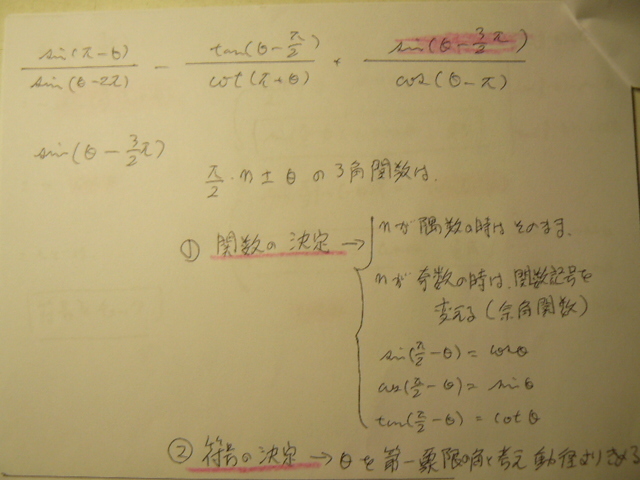 sin(π-θ)/sin(θ-2π) - tan(θ-π/2)/cot(π+θ) * sin(θ-3/2π)/cos(θ-π)
sin(θ-3/2π)
π/2・n±θ の3角関数は.
① 関数の決定 → nが偶数の時はそのまま.
nが奇数の時は、関数記号を
変える(余角関数)
sin(π/2-θ)=cosθ
cos(π/2-θ)=sinθ
tan(π/2-θ)=cotθ
② 符号の決定 → θを第一象限の角と考え動径よりきめる